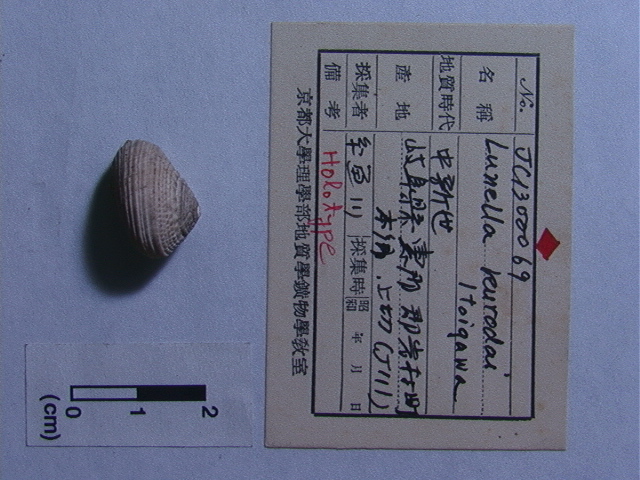 No. JC1300069
名稱 Lunella kurodai
Itoigawa
地質時代 中新世
產地 岐阜県 郡岩村町
本郷 上切 (J111)
採集者 糸魚川 採集時 昭和 年 月 日
備考 Holotype
京都大學理學部地質學鑛物學教室
0 1 2
(cm)